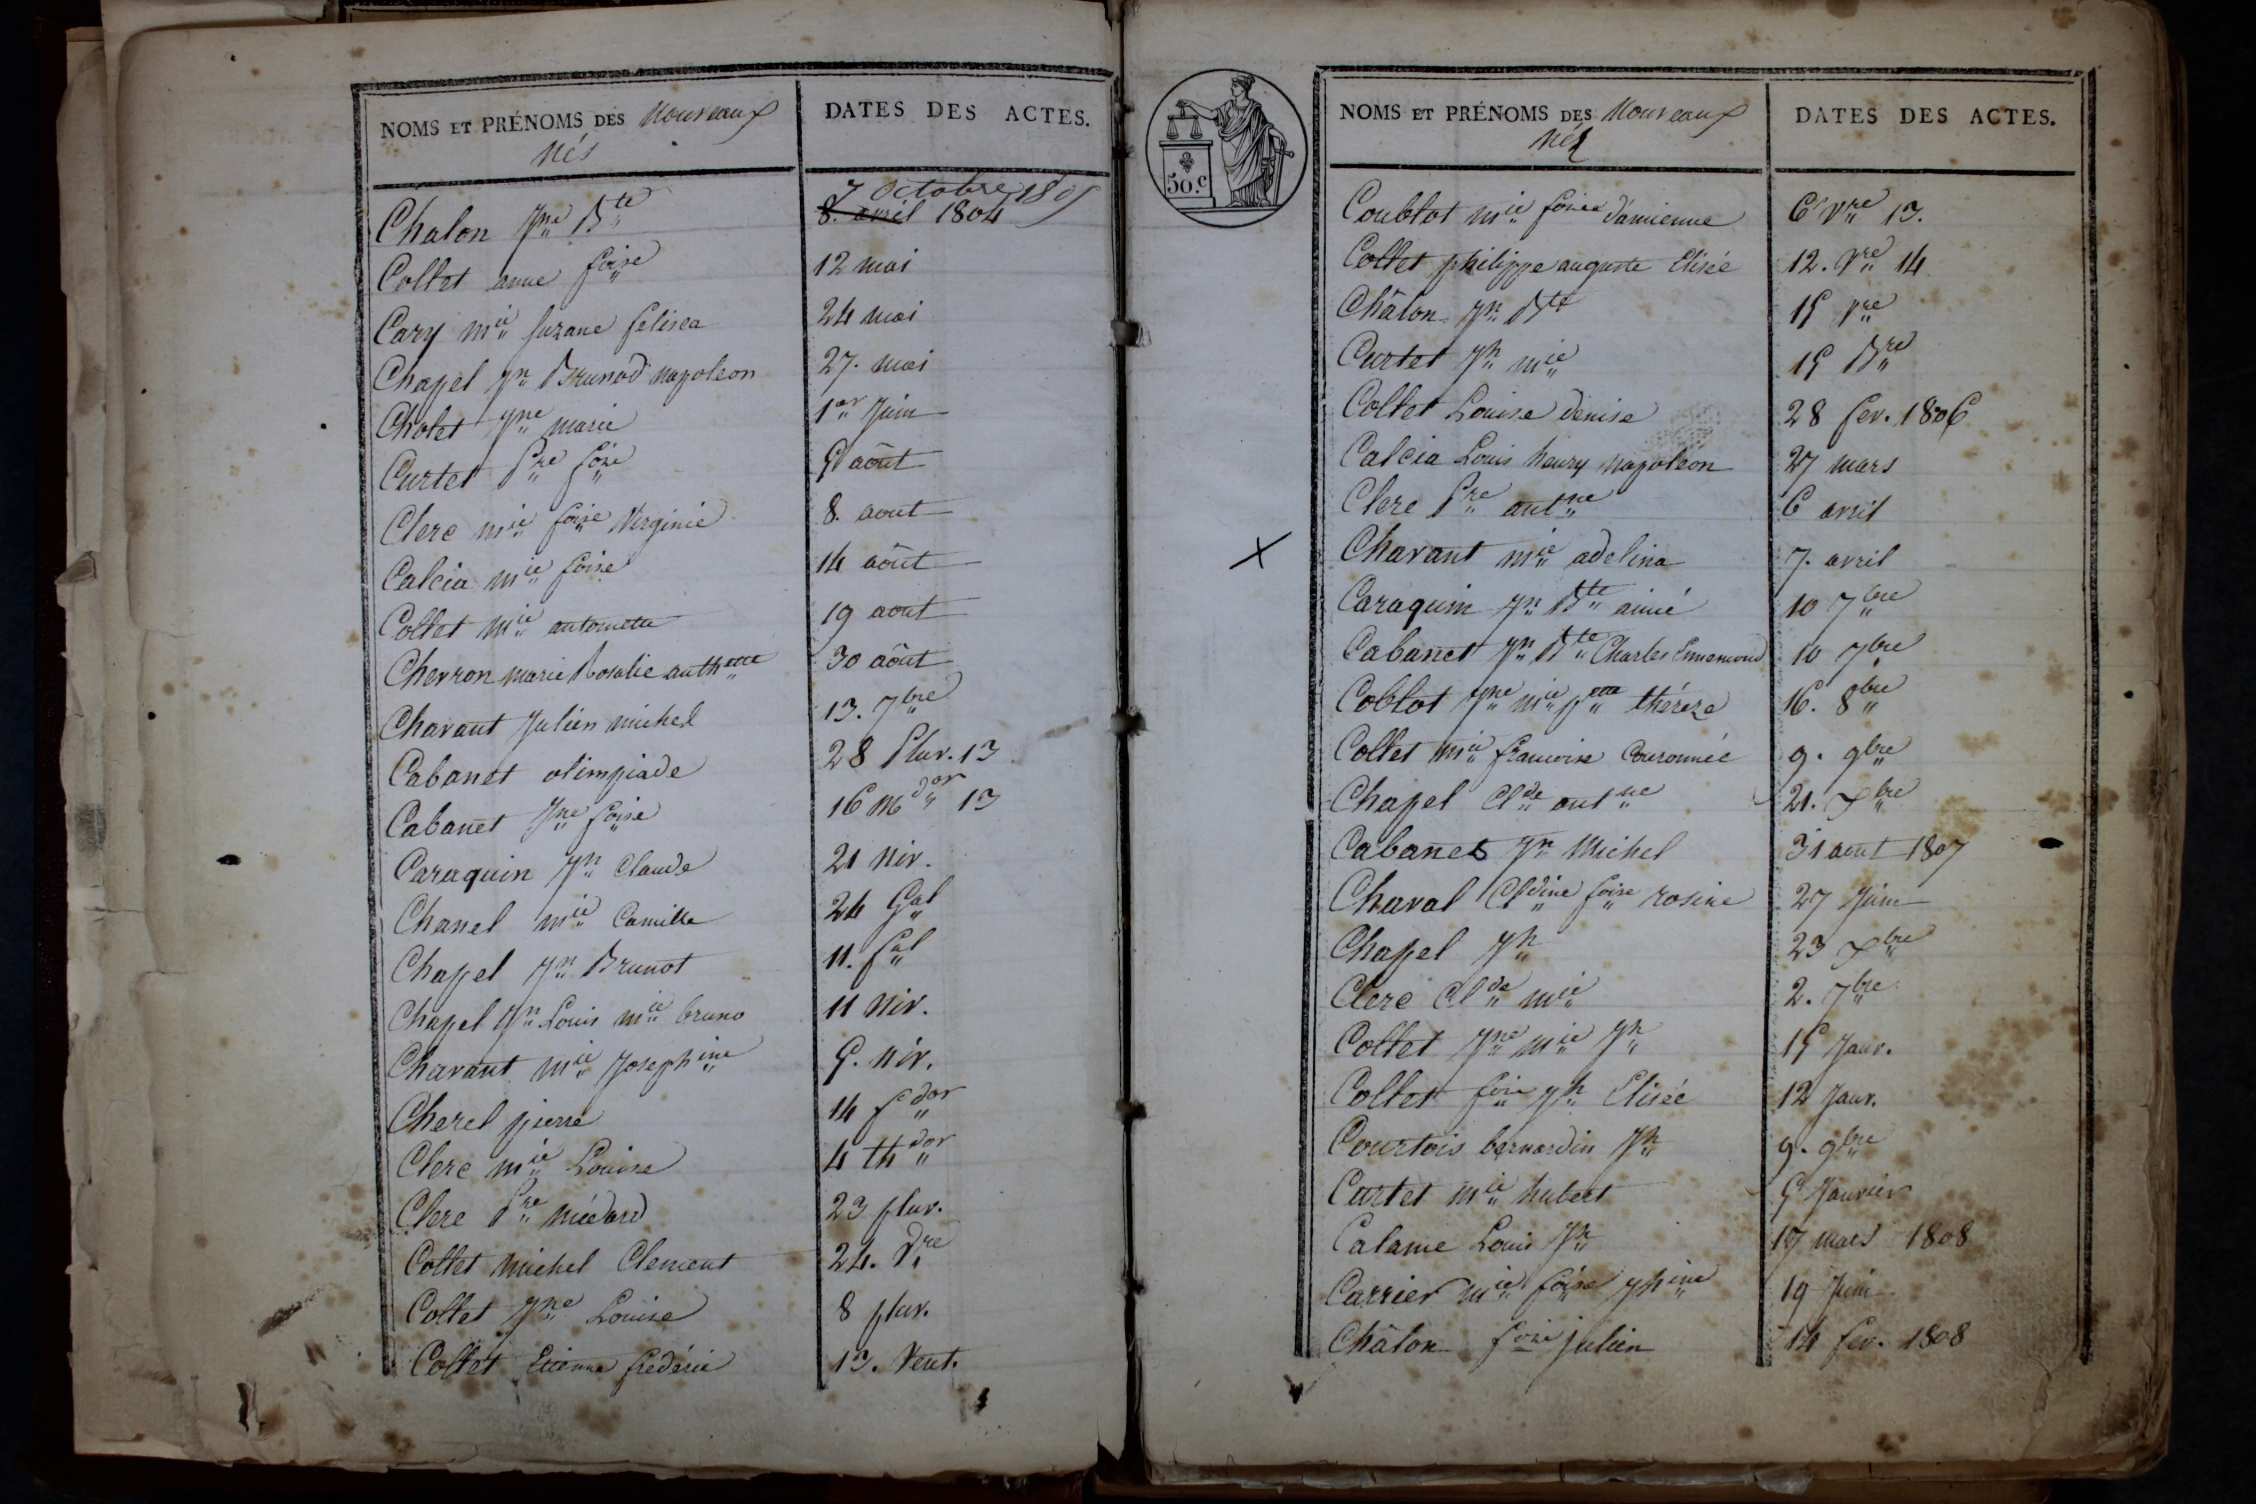 NOMS ET PRÉNOMS DES Nouveaux
nés
DATES DES ACTES.
Chalon Jne Bte 7 octobre 1805
8. avril 1804
Collet anne foise 12 mai
Cary mie suzane felisea 24 mai
Chapel Jn Brunod napoleon 27. mai
Cholet Jne marie 1er Juin
Curtet Pre foise 5 aôut
Clerc mie foise Virginie 8. aout
Calcia mie foise 14 aôut
Collet mie antoinette 19 aout
Chevron marie Rosalie anthette 30 aôut
Chavant Julien michel 13. 7bre
Cabanet olimpiade 28 Pluv. 13
Cabanet Jne foise 16 Mdor 13
Caraquin Jn Claude 21 Niv.
Chanel mie Camille 24 Gal
Chapel Jn Brunot 11. fal
Chapel Jn Louis mie bruno 11 Niv.
Chavant mie Josephine 5. niv.
Cherel pierre 14 fdor
Clerc mie Louise 4 thdor
Clerc Pre médard 23 pluv.
Collet michel Clement 24. Vre
Collet Jne Louise 8 pluv.
Collet Etienne frederic 13. Vent.
50.c
NOMS ET PRÉNOMS DES Nouveaux
nés
DATES DES ACTES.
Coublot mie foise damienne 6 Vre 13.
Collet philippe auguste Elisée 12. Vre 14
Châlon Jn Bte 15 Vre
Curtet Jh mie 15 Bre
Collet Louise denise 28 fev. 1806
Calcia Louis henry napoleon 27 mars
Clerc Pre antne 6 avril
Chavant mie adelina 7. avril
Caraquin Jn Bte aimé 10 7bre
Cabanet Jn Bte Charles Ennemond 10 7bre
Coblot Jne mie pette thérèze 16. 8bre
Collet mie francoise Couronnée 9. 9bre
Chapel Clde antne 21. Xbre
Cabanet Jn Michel 31 aout 1807
Chaval Cldine foise rosine 27 Juin
Chapel Jh 23 Xbre
Clerc Clde mie 2. 7bre
Collet Jne mie Jh 15 Janv.
Collet foise Jh Elisée 12 Janv.
Courtois bernardin Jh 9. 9bre
Curtet mie hubert 5 Janvier
Calame Louis Jh 17 mars 1808
Carrier mie foise Jphine 19 Juin
Châlon fois julien 14 fev. 1808